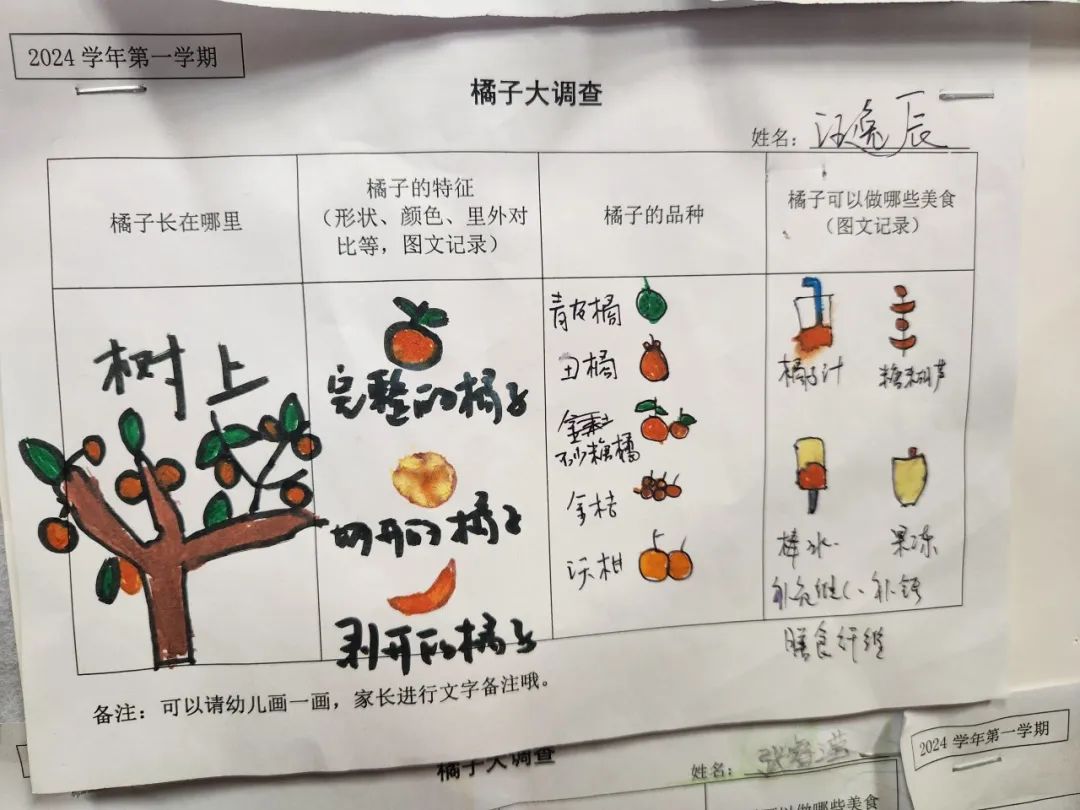 2024 学年第一学期
橘子大调查
姓名：汪逸辰
橘子长在哪里
橘子的特征
（形状、颜色、里外对
比等，图文记录）
橘子的品种
橘子可以做哪些美食
（图文记录）
树上
完整的橘子
切开的橘子
剥开的橘子
青皮橘
丑橘
砂糖橘
金桔
沃柑
橘子汁
糖葫芦
棒冰
果冻
补充维C、补钙
膳食纤维
备注：可以请幼儿画一画，家长进行文字备注哦。
橘子大调查
姓名：张
2024 学年第一学期
可以做哪些美食